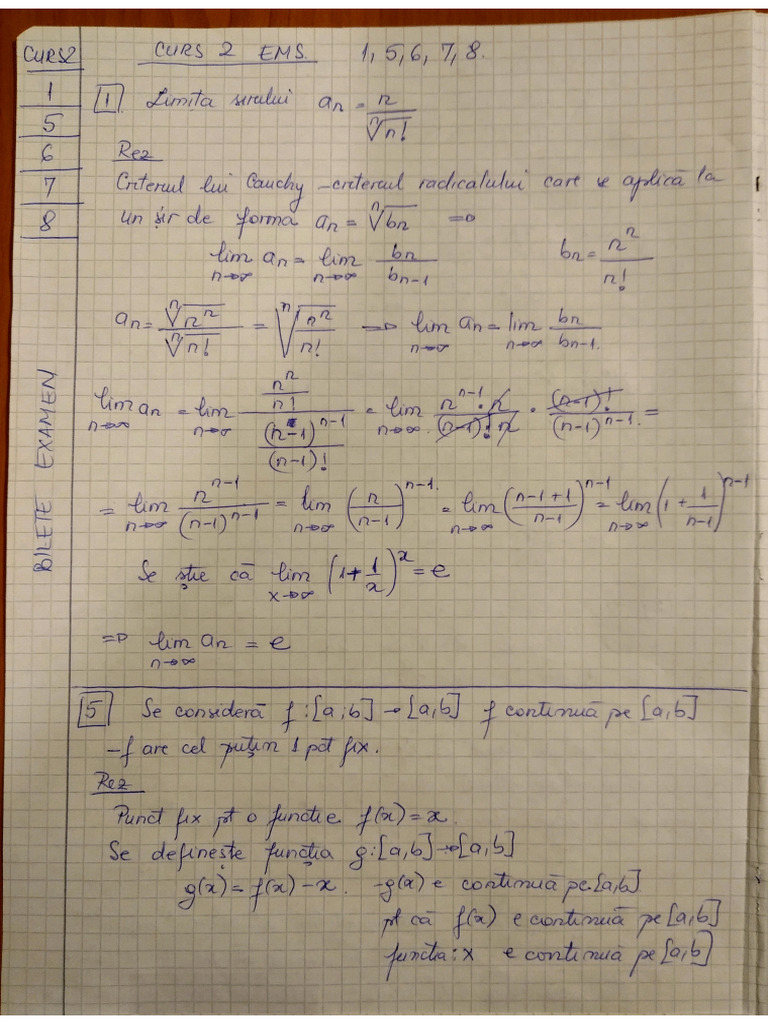 CURS2
1
5
6
7
8
BILETE EXAMEN
CURS 2 EMS. 1, 5, 6, 7, 8.
1. Limita sirului an = n / ⁿ√n!
Rez
Criteriul lui Cauchy – criteriul radicalului care se aplică la
un șir de forma an = ⁿ√bn =>
lim n→∞ an = lim n→∞ bn / bn-1    bn = nⁿ / n!
an = ⁿ√nⁿ / ⁿ√n! = ⁿ√(nⁿ / n!) => lim n→∞ an = lim n→∞ bn / bn-1.
lim n→∞ an = lim n→∞ (nⁿ / n!) / ((n-1)ⁿ⁻¹ / (n-1)!) = lim n→∞ (nⁿ⁻¹ · n) / ((n-1)! n) · (n-1)! / (n-1)ⁿ⁻¹ =
= lim n→∞ nⁿ⁻¹ / (n-1)ⁿ⁻¹ = lim n→∞ (n / (n-1))ⁿ⁻¹ = lim n→∞ ((n-1+1) / (n-1))ⁿ⁻¹ = lim n→∞ (1 + 1 / (n-1))ⁿ⁻¹
Se știe că lim x→∞ (1 + 1/x)ˣ = e
=> lim n→∞ an = e
5 Se consideră f : [a; b] → [a, b] f continuă pe [a, b]
- f are cel puțin 1 pct fix.
Rez
Punct fix pt o functie f(x) = x.
Se definește funcția g : [a, b] → [a, b]
g(x) = f(x) - x. - g(x) e continuă pe [a, b]
pt că f(x) e continuă pe [a, b]
functia : x e continuă pe [a, b]